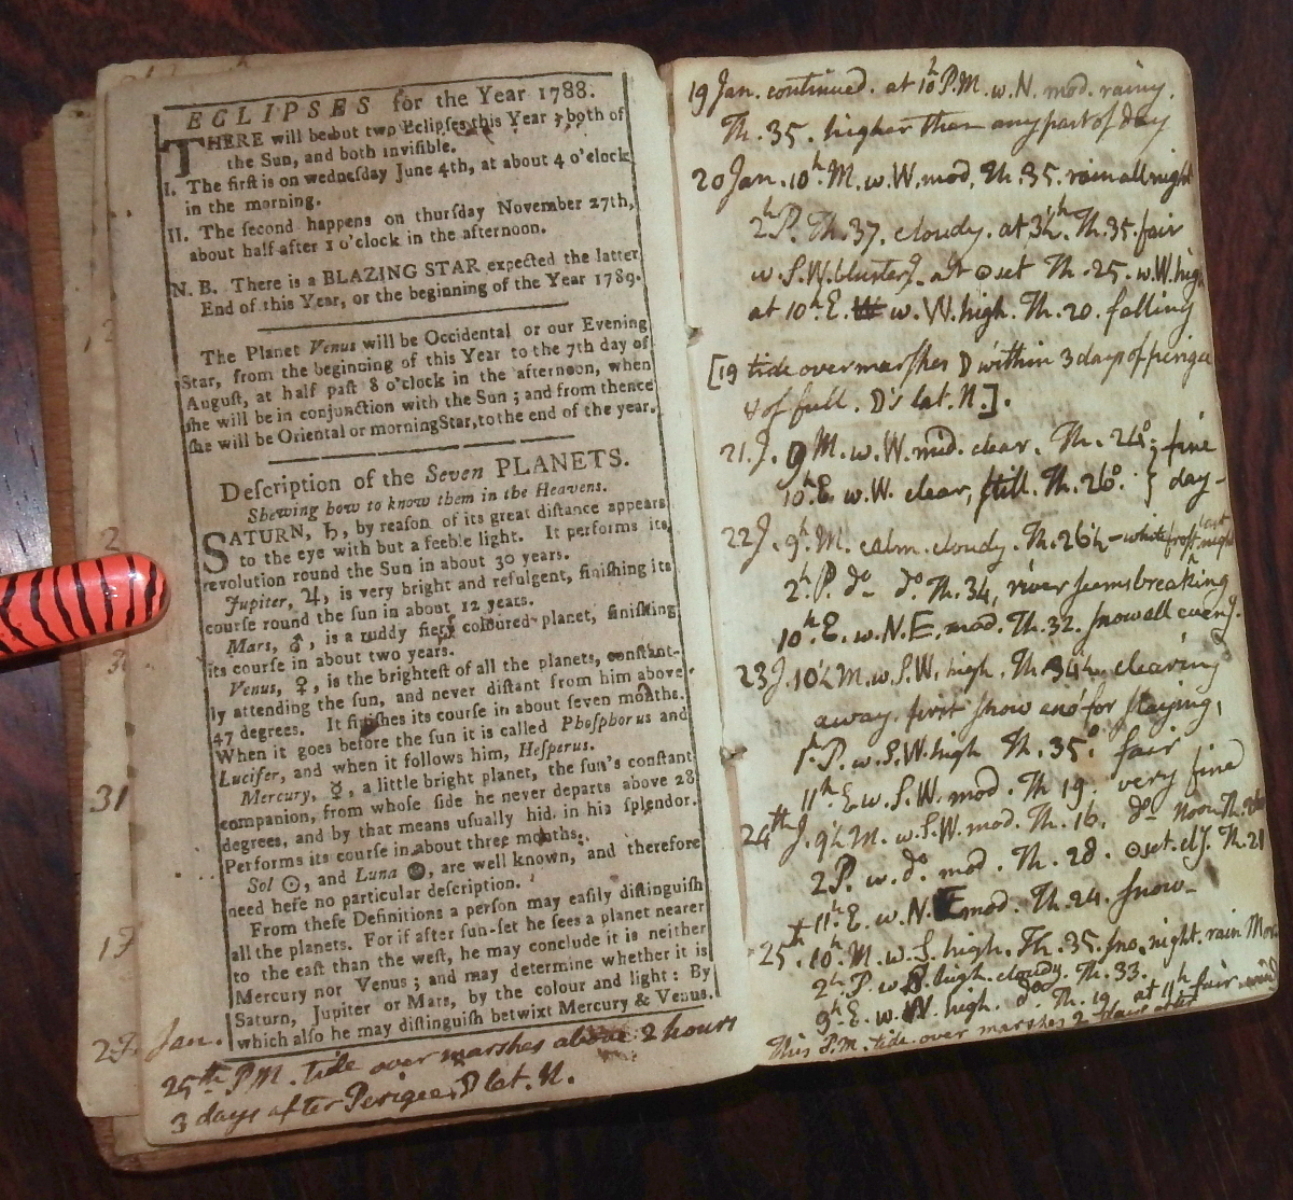 ECLIPSES for the Year 1788.
THERE will be but two Eclipſes this Year; both of
the Sun, and both inviſible.
I. The firſt is on wedneſday June 4th, at about 4 o'clock
in the morning.
II. The ſecond happens on thurſday November 27th,
about half after 1 o'clock in the afternoon.
N. B. There is a BLAZING STAR expected the latter
End of this Year, or the beginning of the Year 1789.
The Planet Venus will be Occidental or our Evening
Star, from the beginning of this Year to the 7th day of
Auguſt, at half paſt 8 o'clock in the afternoon, when
ſhe will be in conjunction with the Sun; and from thence
ſhe will be Oriental or morning Star, to the end of the year.
Deſcription of the Seven PLANETS.
Shewing how to know them in the Heavens.
SATURN, ♄, by reaſon of its great diſtance appears
to the eye with but a feeble light. It performs its
revolution round the Sun in about 30 years.
Jupiter, ♃, is very bright and refulgent, finiſhing its
courſe round the ſun in about 12 years.
Mars, ♂, is a ruddy fiery coloured planet, finiſhing
its courſe in about two years.
Venus, ♀, is the brighteſt of all the planets, conſtant-
ly attending the ſun, and never diſtant from him above
47 degrees. It finiſhes its courſe in about ſeven months.
When it goes before the ſun it is called Phoſphorus and
Lucifer, and when it follows him, Heſperus.
Mercury, ☿, a little bright planet, the ſun's conſtant
companion, from whoſe ſide he never departs above 28
degrees, and by that means uſually hid in his ſplendor.
Performs its courſe in about three months.
Sol ☉, and Luna, are well known, and therefore
need here no particular deſcription.
From theſe Definitions a perſon may eaſily diſtinguiſh
all the planets. For if after ſun-ſet he ſees a planet nearer
to the eaſt than the weſt, he may conclude it is neither
Mercury nor Venus; and may determine whether it is
Saturn, Jupiter or Mars, by the colour and light: By
which alſo he may diſtinguiſh betwixt Mercury & Venus.
Jan.
25th P.M. tide over marshes above 2 hours
3 days after Perigee, D lat. N.
31
17
19 Jan. continued. at 10h P.M. w. N. mod. rainy.
Th. 35. higher than any part of day
20 Jan. 10h M. w. W. mod. Th. 35. rain all night
2h P. Th. 37. cloudy. at 3½h Th. 35. fair
w. S.W. bluster'g. at ⊙ set Th. 25. w. W. hig
at 10h E. w. W. high. Th. 20. falling
[19 tide over marſhes D within 3 days of perigee
& of full. D's lat. N.].
21. J. 9 M. w. W. mod. clear. Th. 24°; fine
10h E. w. W. clear, ſtill. Th. 26°. } day-
22 J. 9h M. calm. cloudy. Th. 26½ - white froſt last night
2h P. do do Th. 34, river ſeems breaking
10h E. w. N.E. mod. Th. 32. ſnow all eveng.
23 J. 10½ M. w. S.W. high. Th. 34½ clearing
away. firſt ſnow eno' for ſlaying,
1h P. w. S.W. high Th. 35° fair
11h E. w. S.W. mod. Th 19. very fine
24th J. 9½ M. w. S.W. mod. Th. 16. do Noon Th.
2 P. w. do mod. Th. 28. ⊙ set. Th. 21
11h E. w. N.E mod. Th. 24. ſnow-
25th. 10h M. w. S. high. Th. 35. ſno. night. rain Mor.
2h P. w. high. cloudy. Th. 33.
9h E. w. W high. do Th. 19. at 11h fair
This P.M. tide over marshes 2 days after